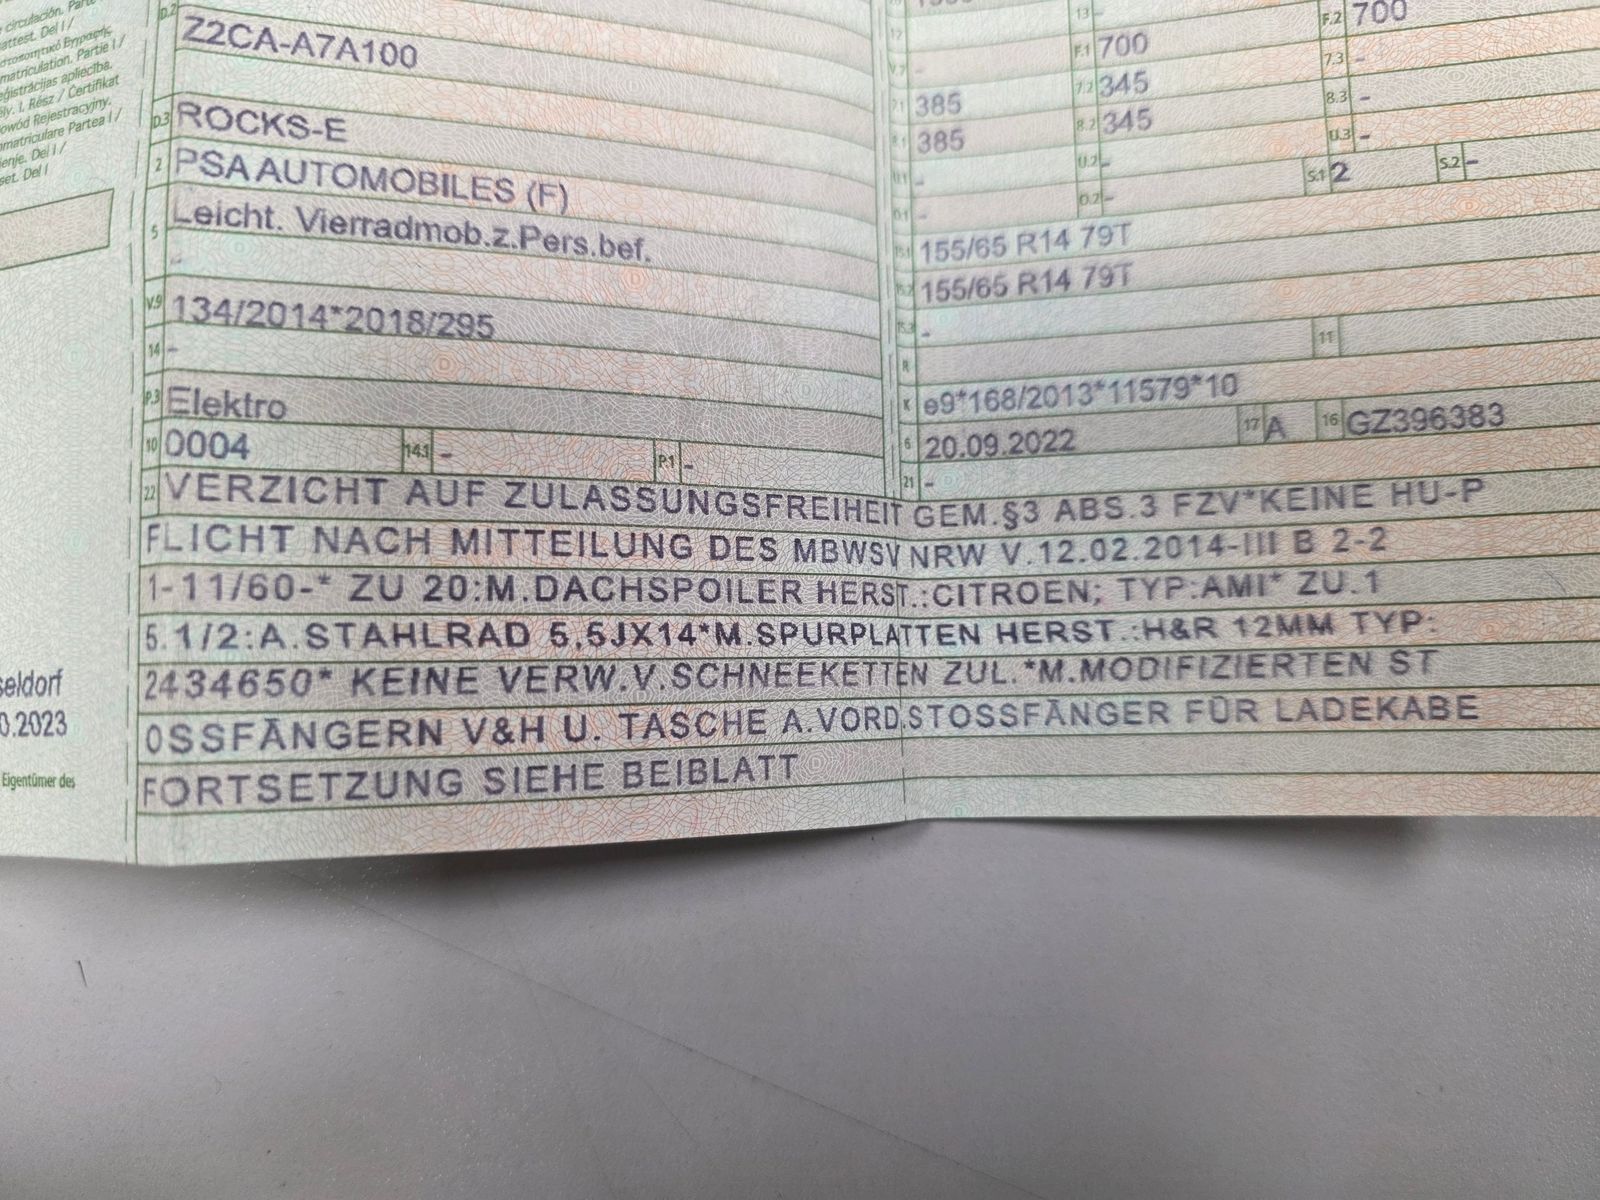 circulación. Parte
attest. Del I /
matriculation. Partie I /
eģistrācijas apliecība.
ély. I. Rész / Certifikat
owód Rejestracyjny.
matriculare Partea I /
enje. Del I /
set. Del I
seldorf
0.2023
Eigentümer des
D.2
Z2CA-A7A100
D.3 ROCKS-E
2 PSA AUTOMOBILES (F)
5 Leicht. Vierradmob.z.Pers.bef.
-
V.9 134/2014*2018/295
14 -
P.3 Elektro
10 0004 14.1 - P.1 -
13 - F.2 700
12 F.1 700 7.3 -
V.7 -
7.1 385 7.2 345 8.3 -
8.1 385 8.2 345 U.3 -
U.1 - U.2 - S.1 2 S.2 -
O.1 - O.2 -
15.1 155/65 R14 79T
15.2 155/65 R14 79T
15.3 -
R 11
K e9*168/2013*11579*10
6 20.09.2022 17 A 16 GZ396383
21 -
22 VERZICHT AUF ZULASSUNGSFREIHEIT GEM.§3 ABS.3 FZV*KEINE HU-P
FLICHT NACH MITTEILUNG DES MBWSV NRW V.12.02.2014-III B 2-2
1-11/60-* ZU 20:M.DACHSPOILER HERST.:CITROEN; TYP:AMI* ZU.1
5.1/2:A.STAHLRAD 5,5JX14*M.SPURPLATTEN HERST.:H&R 12MM TYP:
2434650* KEINE VERW.V.SCHNEEKETTEN ZUL.*M.MODIFIZIERTEN ST
OSSFÄNGERN V&H U. TASCHE A.VORD.STOSSFÄNGER FÜR LADEKABE
FORTSETZUNG SIEHE BEIBLATT